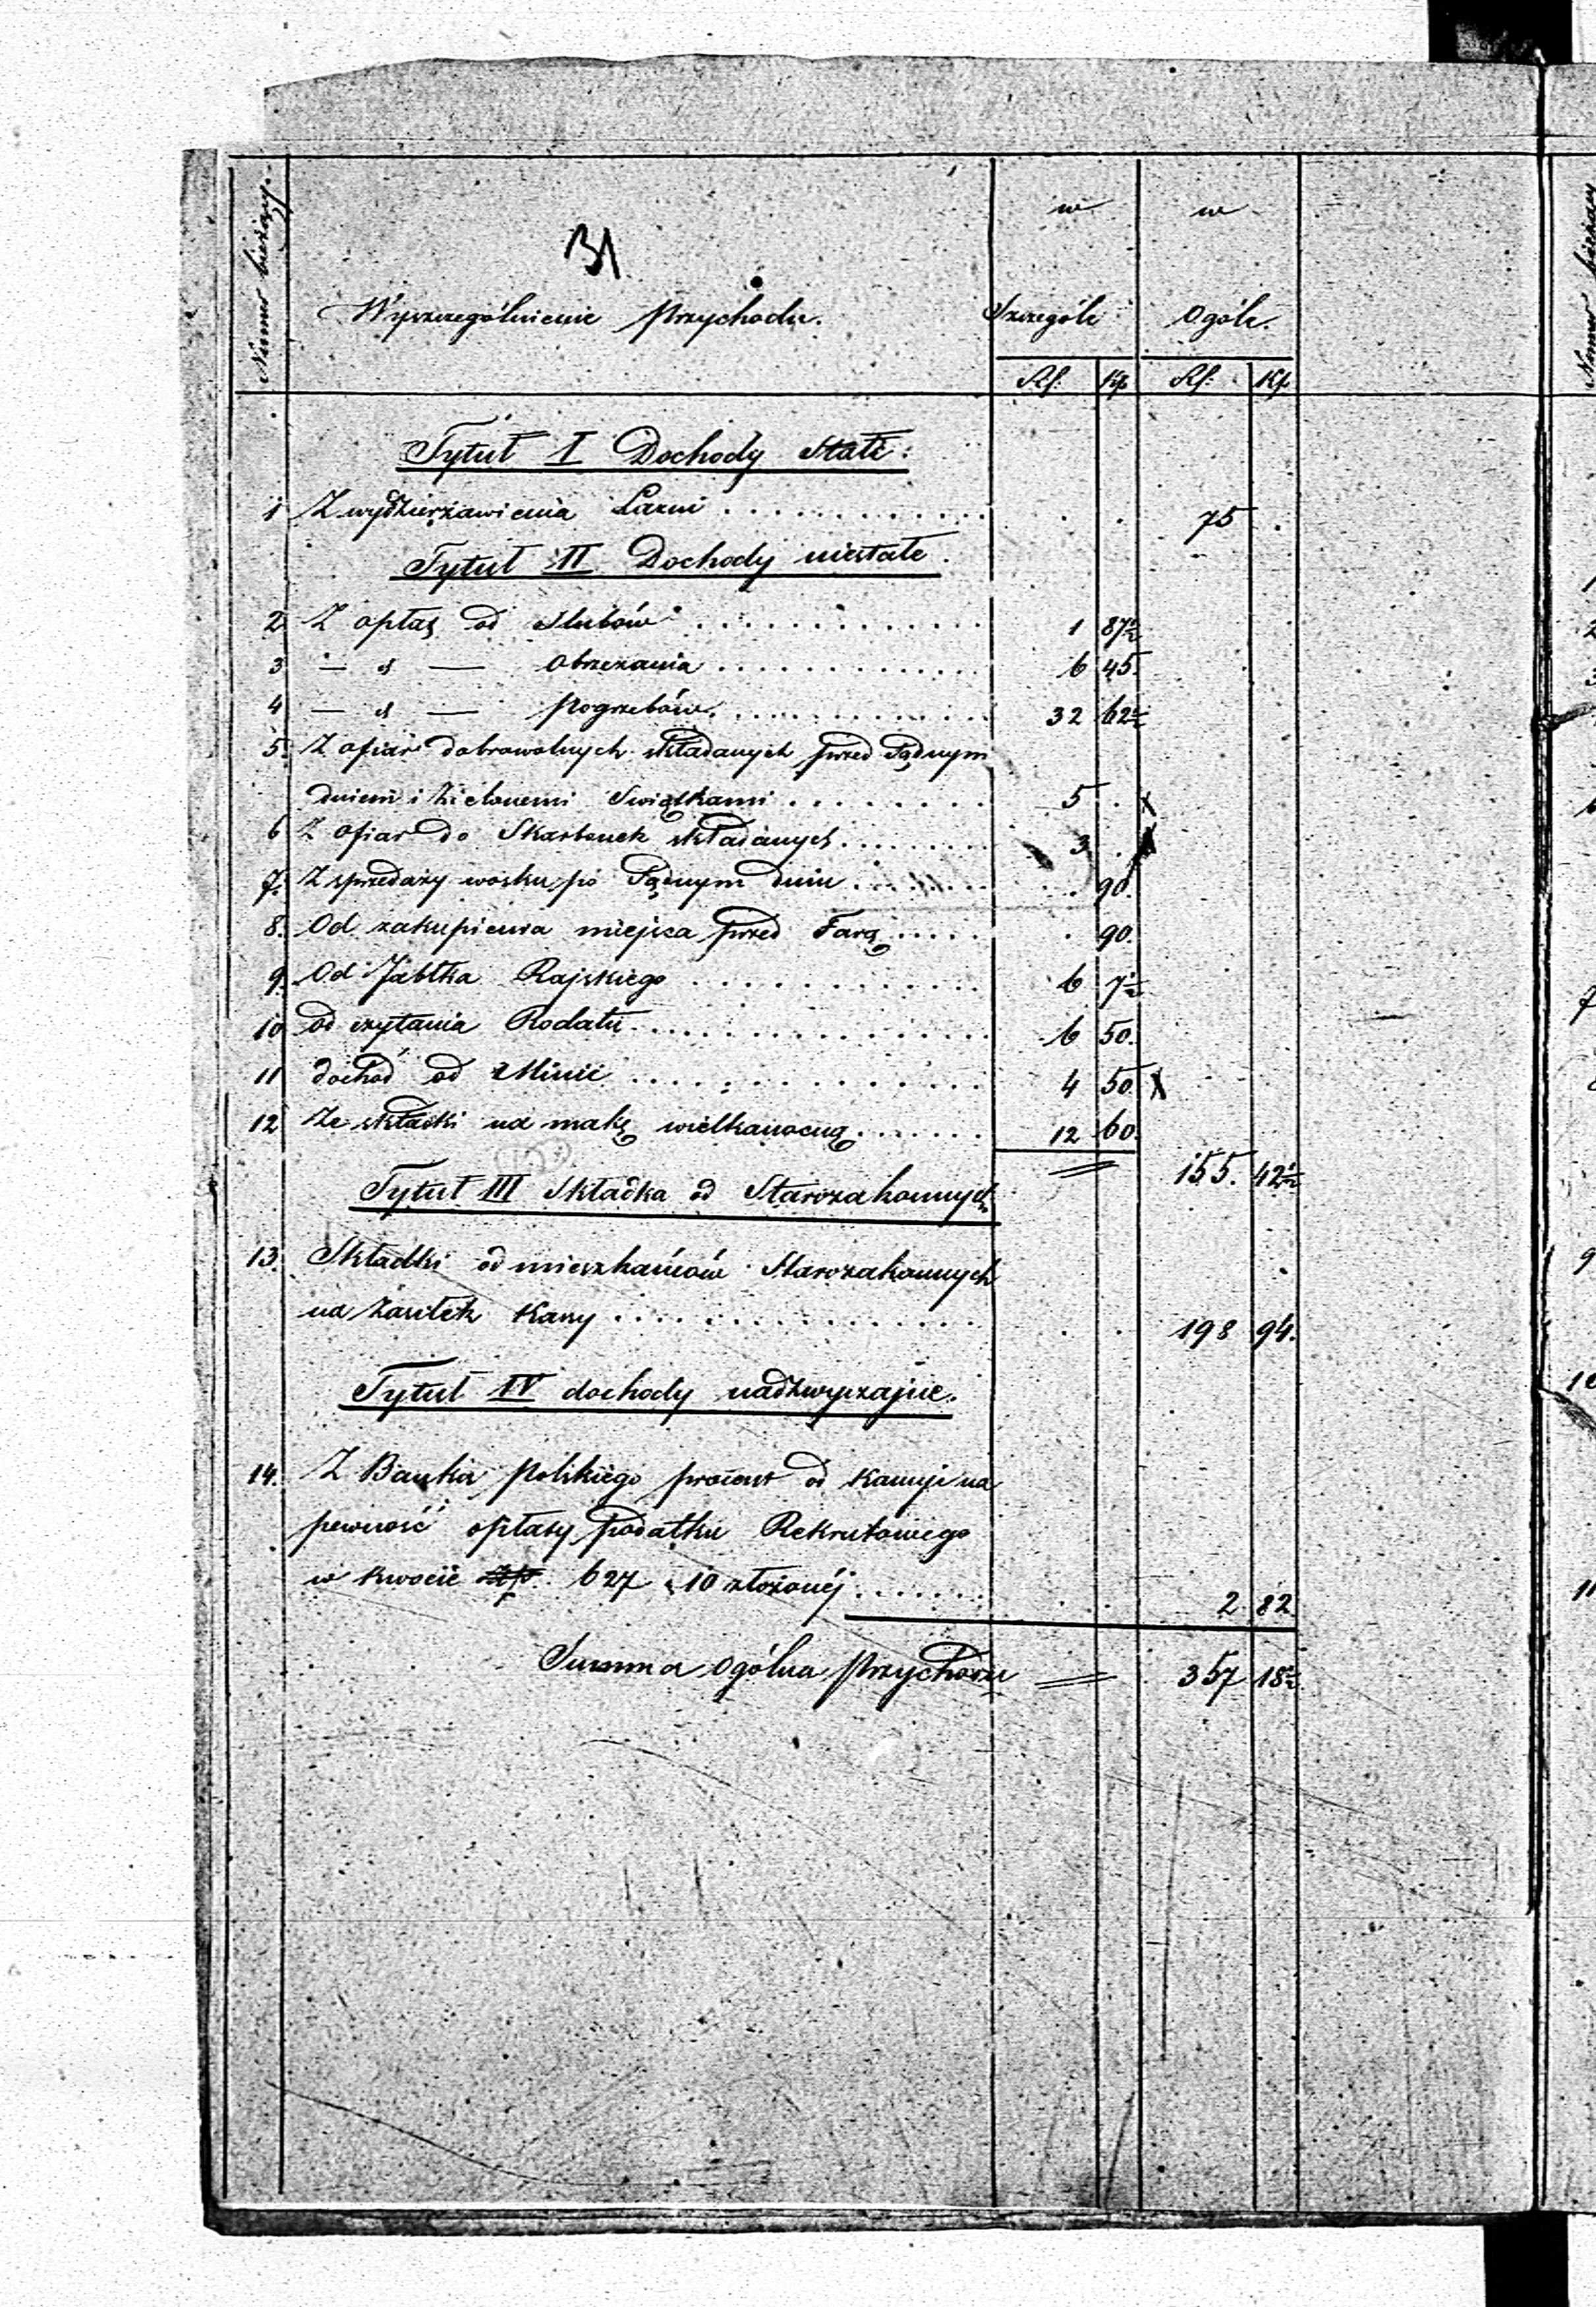 Numer bieżący.
31
Wyszczególnienie przychodu.
w Szczególe
w Ogóle.
Rs. Kp. Rs. Kp.
Tytuł I Dochody Stałe:
1 Z wydzierżawienia Łazni . . . . . . 75 .
Tytuł II Dochody niestałe.
2 Z opłaty od Slubów . . . . . . 1 87½
3 — d — Obrzezania . . . . . . 6 45.
4 — d — pogrzebów. . . . . . . 32 62½
5. Z ofiar dobrowolnych składanych przed Sądnym
dniem i Zielonemi Swiątkami . . . . . . 5 . x
6 Z ofiar do Skarbonek składanych . . . . . . 3 .
7. Z sprzedaży wosku po Sądnym dniu . . . . . . 90.
8. Od zakupienia miejsca przed Farą . . . . . . 90.
9. Od Jabłka Rajskiego . . . . . . 6 7½
10 od czytania Rodału . . . . . . 6 50.
11 dochód od Minii . . . . . . 4 50 x
12 Ze składki na makę wielkanocną . . . . . . 12 60.
155. 42½
Tytuł III Składka od Starozakonnych
13. Składki od mieszkańców Starozakonnych
na zasiłek Kassy . . . . . . 198 94.
Tytuł IV dochody nadzwyczajne.
14. Z Banku polskiego procent od Kaucji na
pewność opłaty podatku Rekrutowego
w kwocie Złp. 627 10 złożonéj . . . . . . 2 82
Summa Ogólna przychodu 357 18½